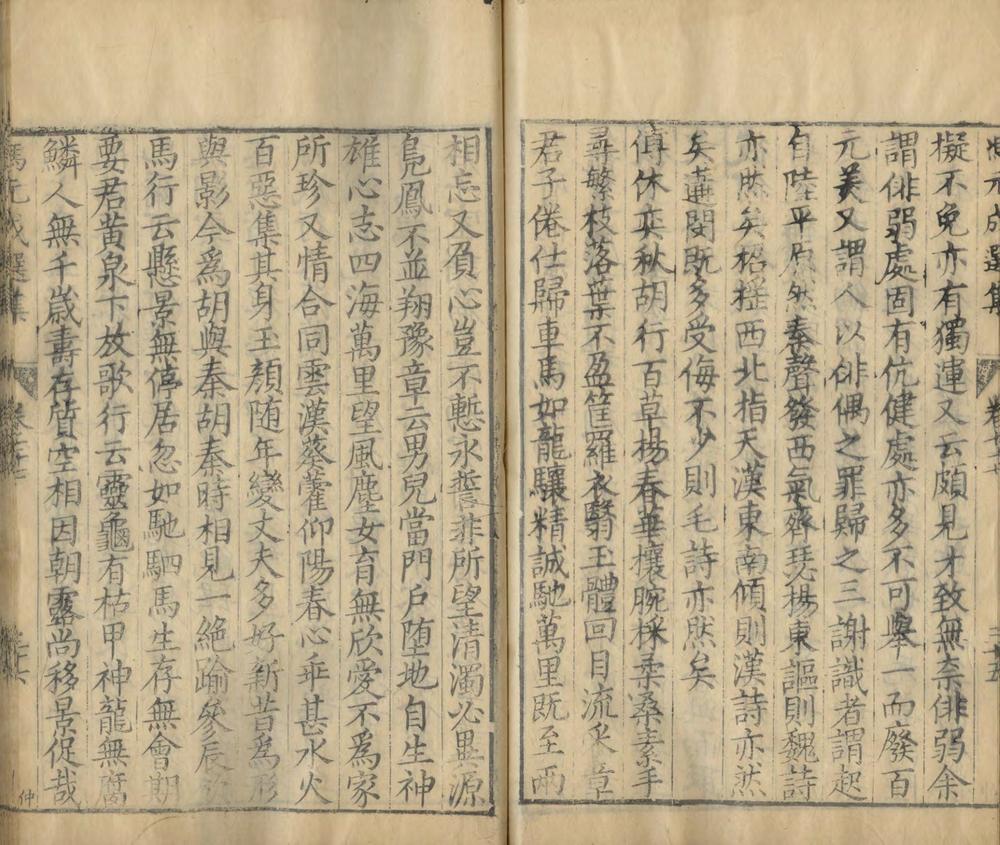 擬不免亦有獨運又云頗見才致無柰俳弱余
謂俳弱處固有伉健處亦多不可舉一而廢百
元美又謂人以俳偶之罪歸之三謝識者謂起
自陸平原然秦聲發西氣齊瑟揚東謳則魏詩
亦然矣招搖西北指天漢東南傾則漢詩亦然
矣遘閔既多受侮不少則毛詩亦然矣
傅休奕秋胡行百草揚春華攘腕採柔桑素手
尋繁枝落葉不盈筐羅衣翳玉體回目流采章
君子倦仕歸車馬如龍驤精誠馳萬里既至兩
相忘又負心豈不慙永誓非所望清濁必異源
鳧鳳不並翔豫章云男兒當門戶墮地自生神
雄心志四海萬里望風塵女育無欣愛不為家
所珍又情合同雲漢葵藿仰陽春心乖甚水火
百惡集其身玉顏隨年變丈夫多好新昔為形
與影今為胡與秦胡秦時相見一絕踰參辰
馬行云懸景無停居忽如馳駟馬生存無會期
要君黃泉下放歌行云靈龜有枯甲神龍無腐
鱗人無千歲壽存質空相因朝露尚移景促哉
仲